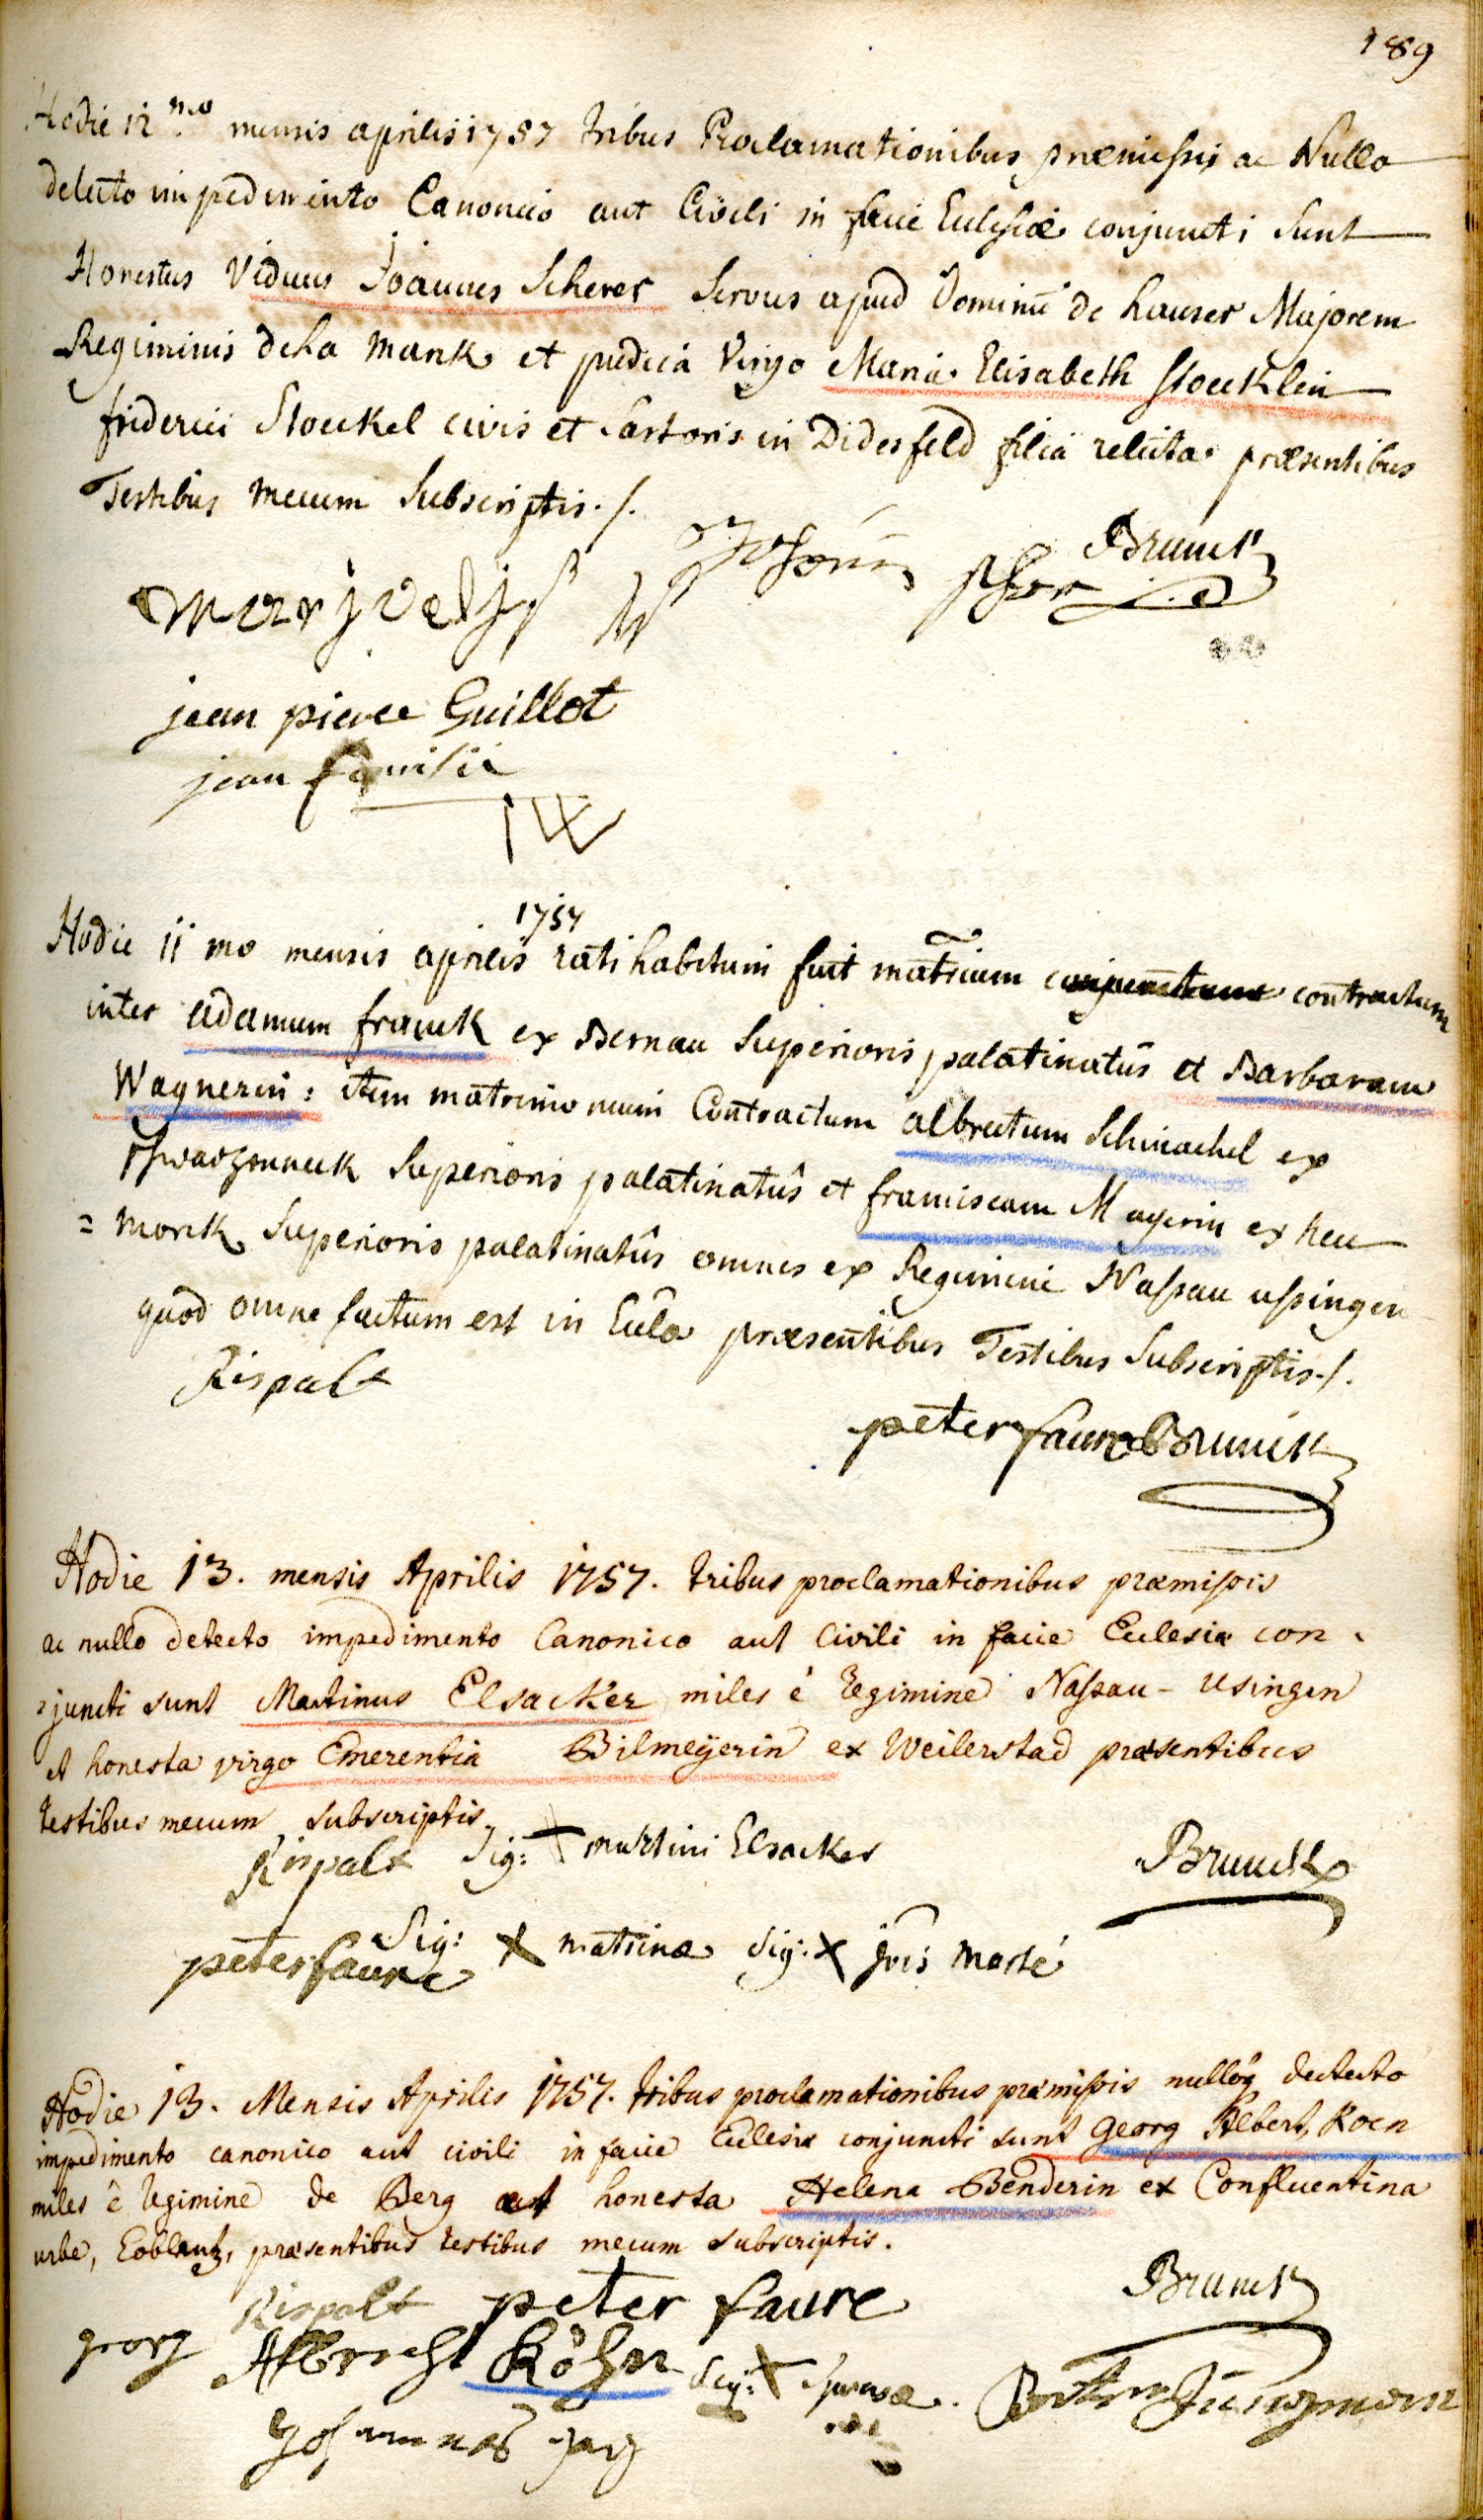 189
Hodie 12 mo mensis aprilis 1757 tribus Proclamationibus præmissis ac Nullo
detecto impedimento Canonico aut Civili in facie Ecclesiæ conjuncti sunt
Honestus Viduus Joannes Scherer Servus apud Dominū de hauser Majorem
Regiminis de La Mark et pudica Virgo Maria Elisabeth Stoecklin
friderici Stoeckel civis et sartoris in Didesfeld filia relicta præsentibus
Testibus mecum Subscriptis ./.
Brunck
jean pierre Guillot
jean
1757
Hodie 11 mo mensis aprilis ratihabitum fuit matrium contractum
inter adamum franck ex Bernau Superioris palatinatûs et Barbaram
Wagnerin: item matrimonium Contractum albrectum Schinachel ex
Superioris palatinatûs et franciscam Mayerin ex heu
= morck Superioris palatinatûs omnes ex Regimine Nassau ussingen
quod omne factum est in Ecclâ præsentibus Testibus Subscriptis ./.
Rispalt
peter faure Brunck
Hodie 13. mensis Aprilis 1757. tribus proclamationibus præmissis
ac nullo detecto impedimento Canonico aut Civili in facie Ecclesiæ con =
= juncti sunt Martinus Elsacker miles è regimine Nassau - Usingen
et honesta virgo Emerentia Bilmeÿerin ex Weilerstad præsentibus
testibus mecum subscriptis.
Rispalt Sig: + martini Elsacker
Brunck
Sig: + matrinæ Sig: + jois Marté
peter faure
Hodie 13. Mensis Aprilis 1757. tribus proclamationibus præmissis nulloq detecto
impedimento canonico aut civili in facie Ecclesiæ conjuncti sunt Georg Albert Koen
miles è regimine de Berg et honesta Helena Benderin ex Confluentina
urbe, Coblentz, præsentibus testibus mecum subscriptis.
Rispalt peter faure
Brunck
georg Albrecht Köhn Sig: + sponsæ.
Johannes